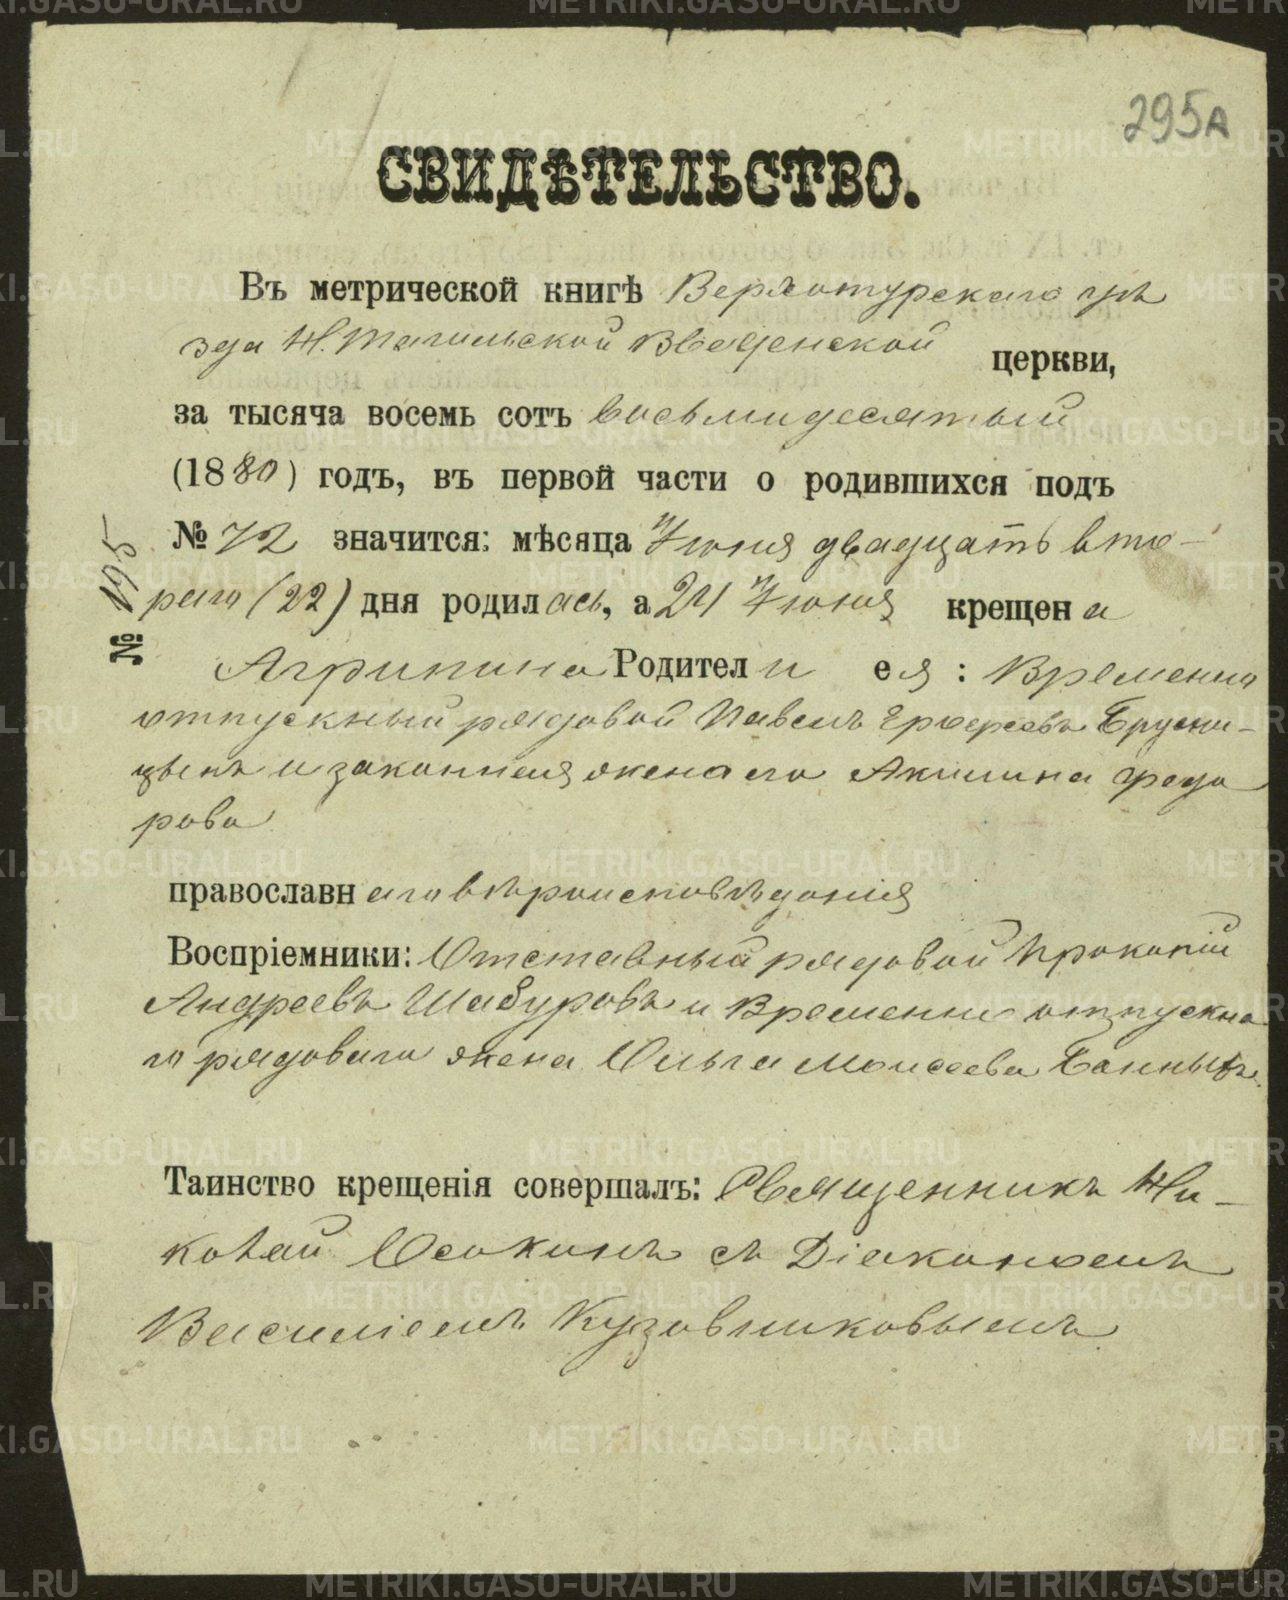 295А
СВИДѢТЕЛЬСТВО.
Въ метрической книгѣ Верхотурскаго уѣ
зда Н. Тагильской Введенской церкви,
за тысяча восемь сотъ восьмидесятый
(1880) годъ, въ первой части о родившихся подъ
№ 72 значится: мѣсяца Іюня двадцать вто-
раго (22) дня родилась, а 24 Іюня крещена
№ 195
Агрипина Родители ея: Временно
отпускный рядовой Павелъ Ерофеевъ Брусни-
цынъ и законная жена его Акилина Федо
рова
православнаго вѣроисповѣданія
Воспріемники: Отставный рядовой Прокопій
Андреевъ Шабуровъ и Временно отпускна
го рядоваго жена Ольга Моисеева Банныхъ.
Таинство крещенія совершалъ: Священникъ Ни-
колай Осокинъ съ Діакономъ
Василіемъ Кузовниковымъ
METRIKI.GASO-URAL.RU